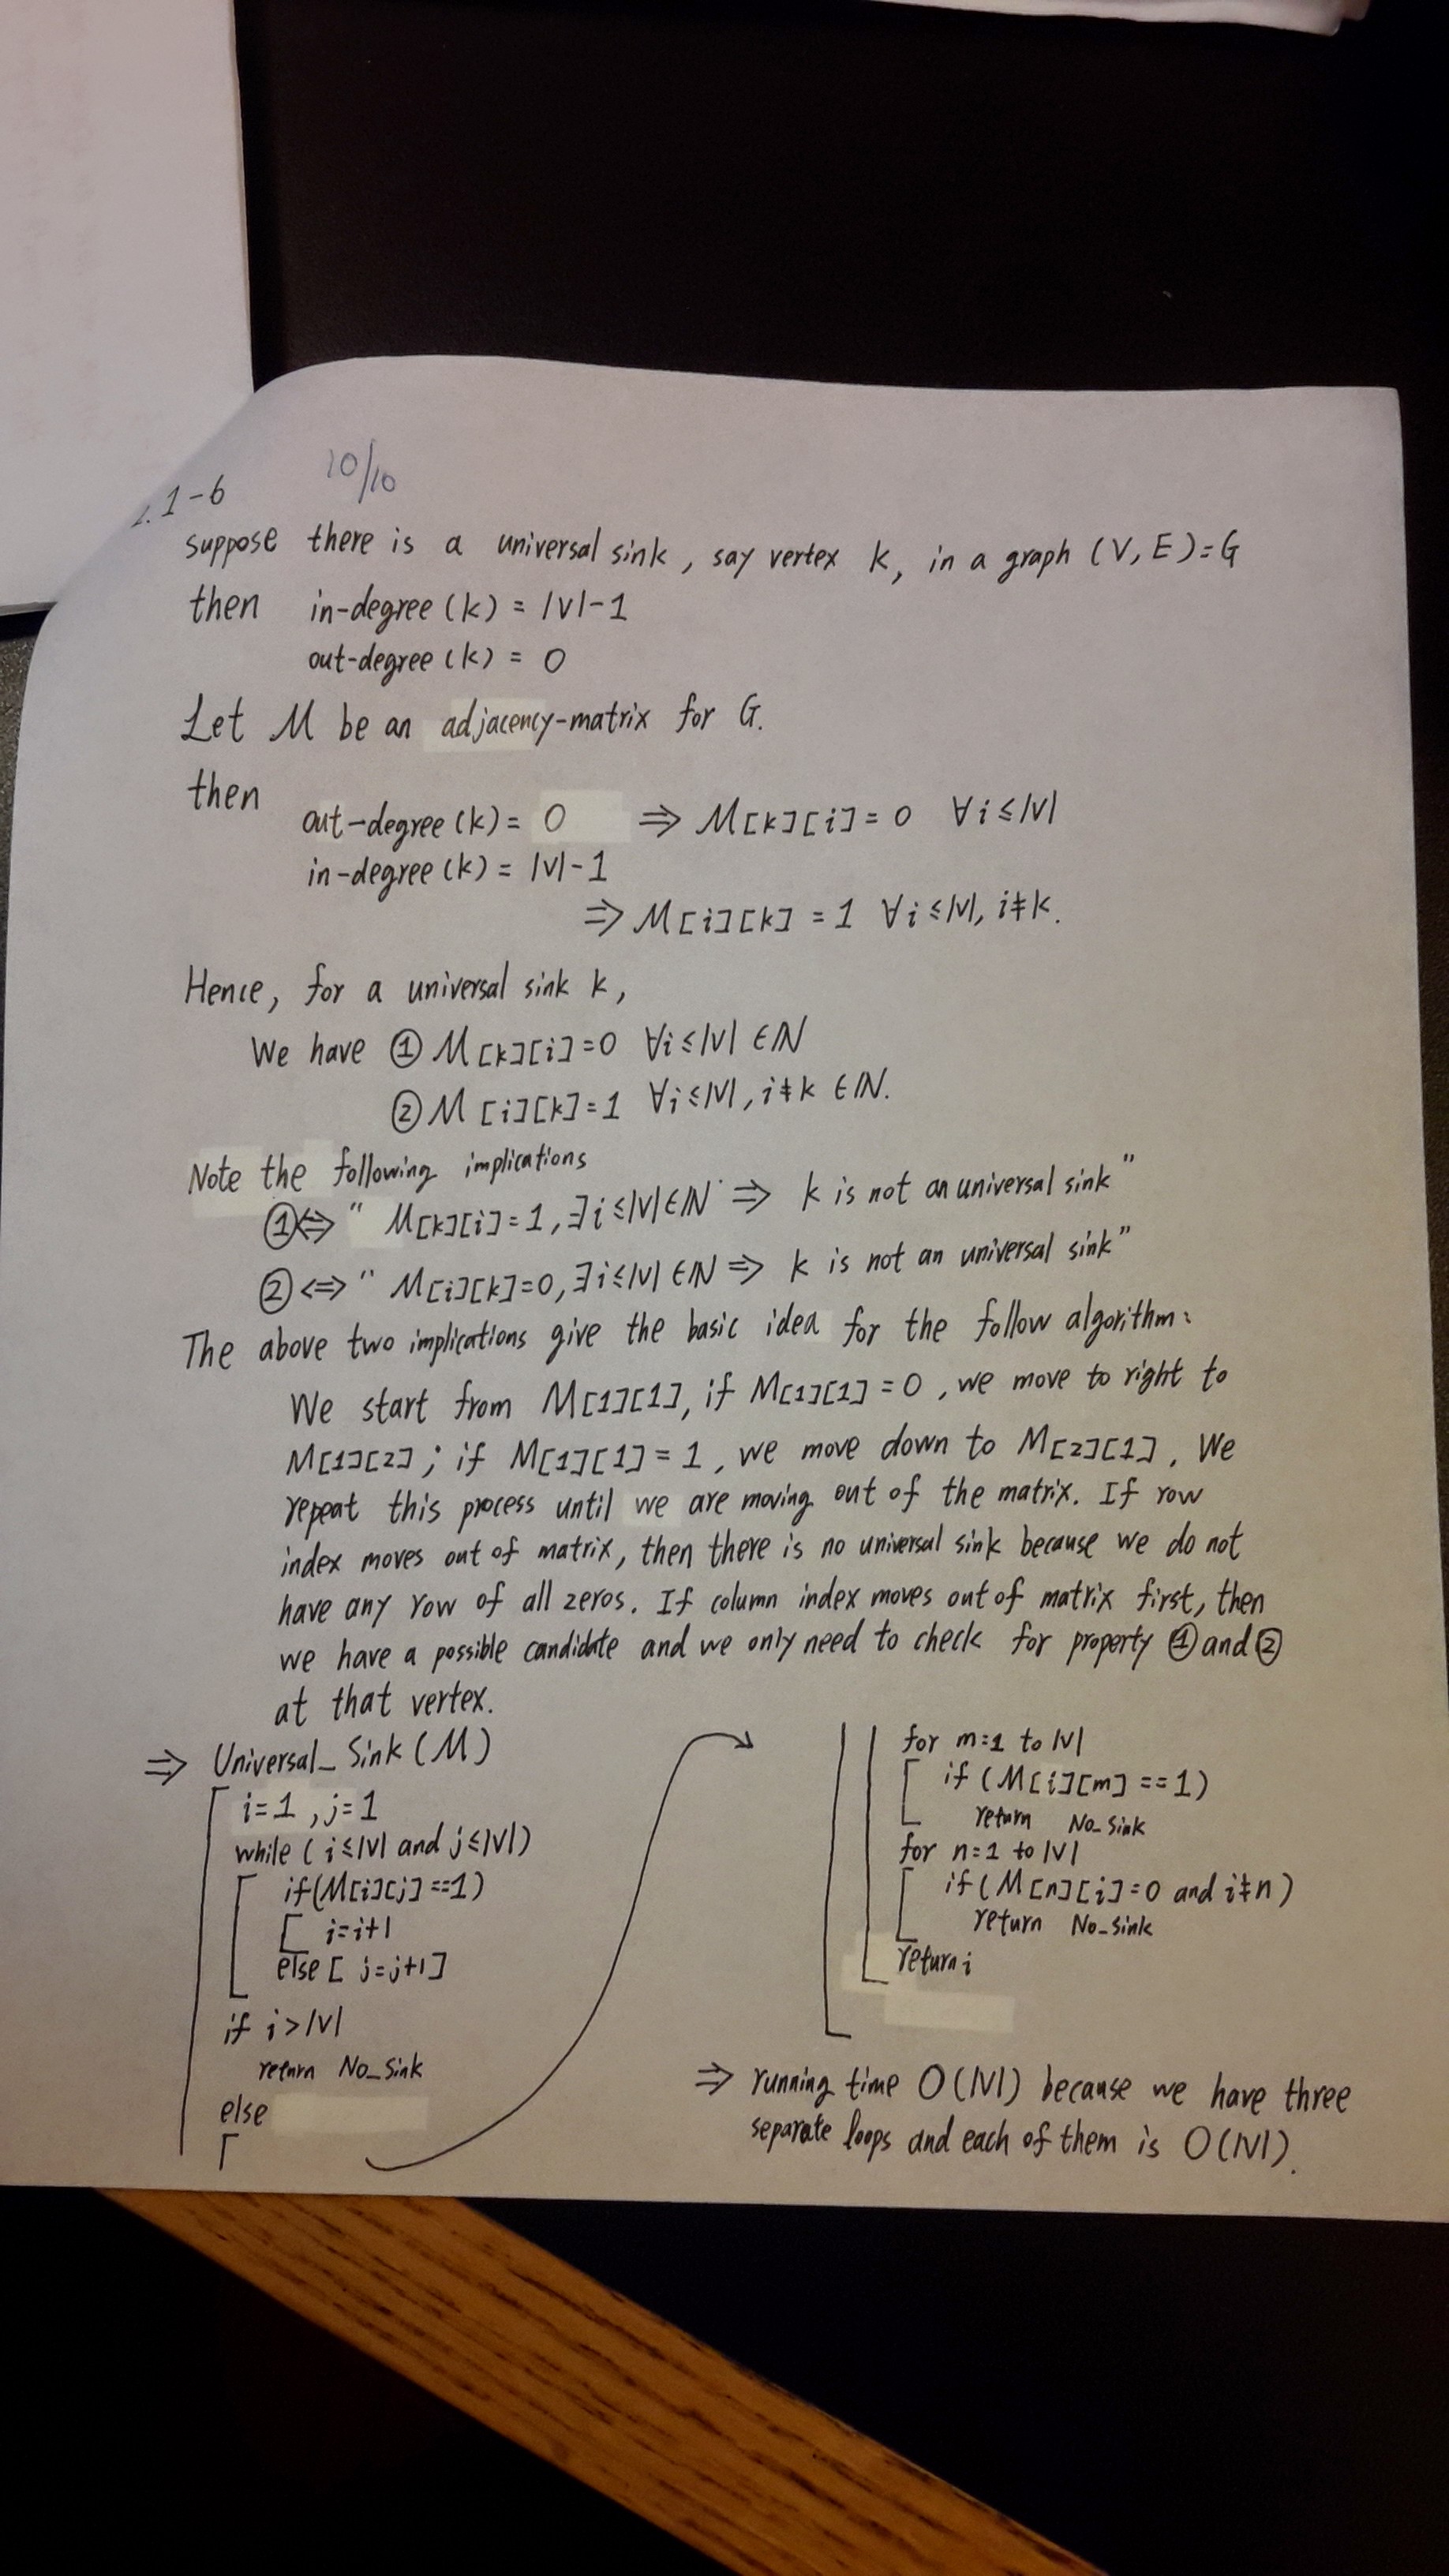 .1-6
10/10
suppose there is a universal sink, say vertex k, in a graph (V, E)=G
then in-degree (k) = |V|-1
out-degree (k) = 0
Let M be an adjacency-matrix for G.
then
out-degree (k) = 0 ⇒ M[k][i] = 0 ∀i≤|V|
in-degree (k) = |V|-1
⇒ M[i][k] = 1 ∀i≤|V|, i≠k.
Hence, for a universal sink k,
We have ① M[k][i]=0 ∀i≤|V| ∈ℕ
② M[i][k]=1 ∀i≤|V|, i≠k ∈ℕ.
Note the following implications
①⇔ " M[k][i]=1, ∃i≤|V|∈ℕ ⇒ k is not an universal sink"
②⇔ " M[i][k]=0, ∃i≤|V|∈ℕ ⇒ k is not an universal sink"
The above two implications give the basic idea for the follow algorithm:
We start from M[1][1], if M[1][1] = 0, we move to right to
M[1][2]; if M[1][1] = 1, we move down to M[2][1]. We
repeat this process until we are moving out of the matrix. If row
index moves out of matrix, then there is no universal sink because we do not
have any row of all zeros. If column index moves out of matrix first, then
we have a possible candidate and we only need to check for property ① and ②
at that vertex.
⇒ Universal_Sink (M)
i=1, j=1
while (i≤|V| and j≤|V|)
if(M[i][j]==1)
i=i+1
else [ j=j+1]
if i>|V|
return No_Sink
else
for m=1 to |V|
if (M[i][m] ==1)
return No_Sink
for n=1 to |V|
if (M[n][i]=0 and i≠n)
return No_Sink
return i
⇒ running time O(|V|) because we have three
separate loops and each of them is O(|V|).